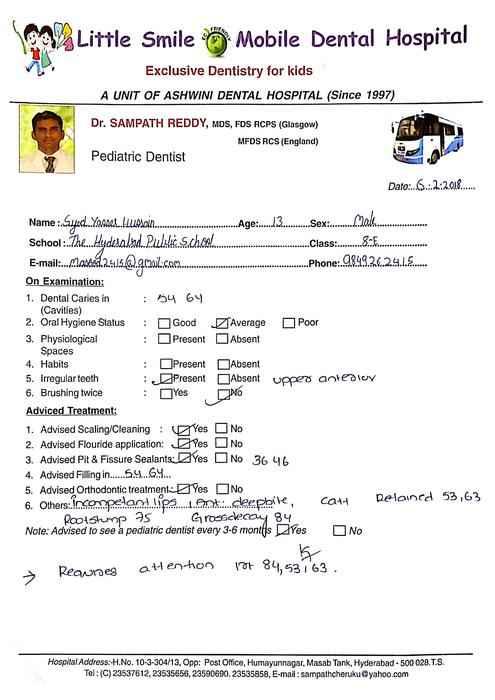 Little Smile ECO FRIENDLY Mobile Dental Hospital
Exclusive Dentistry for kids
A UNIT OF ASHWINI DENTAL HOSPITAL (Since 1997)
Dr. SAMPATH REDDY, MDS, FDS RCPS (Glasgow)
MFDS RCS (England)
Pediatric Dentist
Date: 6.2.2018
Name: Syed Yasser Hussain Age: 13 Sex: Male
School: The Hyderabad Public School Class: 8-E
E-mail: Massod2415@gmail.com Phone: 9849262415
On Examination:
1. Dental Caries in (Cavities) : 54 64
2. Oral Hygiene Status : Good Average Poor
3. Physiological Spaces : Present Absent
4. Habits : Present Absent
5. Irregular teeth : Present Absent upper anterior
6. Brushing twice : Yes No
Adviced Treatment:
1. Advised Scaling/Cleaning : Yes No
2. Advised Flouride application: Yes No
3. Advised Pit & Fissure Sealants: Yes No 36 46
4. Advised Filling in 54 64
5. Advised Orthodontic treatment: Yes No
6. Others: Incompetant lips, Ant. deepbite, Retained 53,63
Rootstump 75 Grossdecay 84
Note: Advised to see a pediatric dentist every 3-6 months Yes No
→ Requires attention for 84,53,63.
Hospital Address:-H.No. 10-3-304/13, Opp: Post Office, Humayunnagar, Masab Tank, Hyderabad - 500 028.T.S.
Tel : (C) 23537612, 23535656, 23590690. 23535858, E-mail : sampathcheruku@yahoo.com